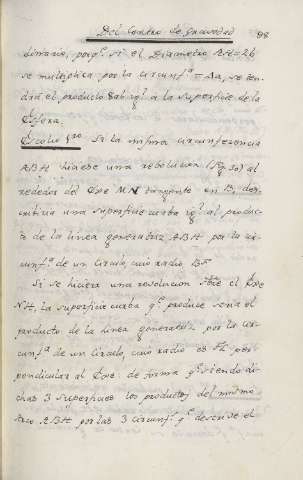 Del Centro de Gravedad 98
dinario, porq.e si el Diametro
se multiplica por la circunf.a = Aa, se ten-
drá el producto 8ab ig.l á la superficie de la
Esfera.
Escolio Si la misma circunferencia
ABH hiciese una revolucion (Fig 30) al
rededor del Exe MN tangente en B, des-
cribiria una superficie curba ig.l al produc-
to de la linea generatriz ABH por la cir-
cunf.a de un circulo, cuio radio BF
Si se hiciera una revolucion sobre el Exe
NH, la superficie curba q.e produce sería el
producto de la linea generatriz por la cir-
cunf.a de un circulo, cuio radio es per-
pendicular al Exe de forma q.e siendo di-
chas 3 superficies los productos del mismo
Arco ABH por las 3 circunf.s q.e describe el